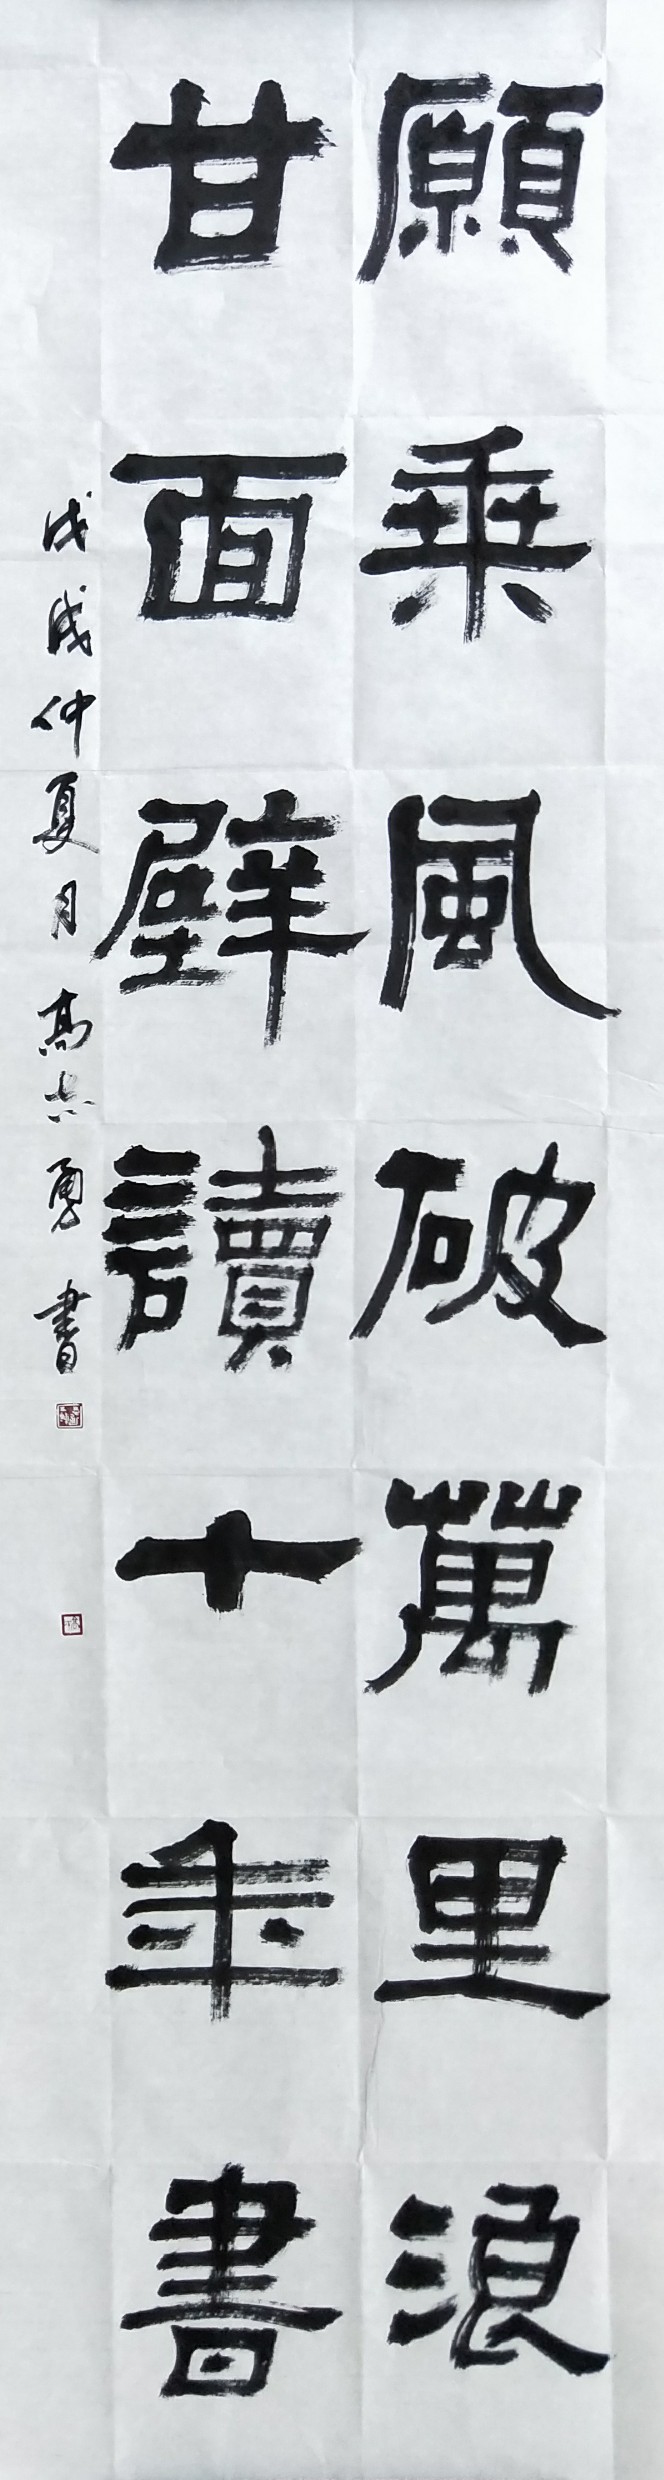 願乘風破萬里浪
甘面壁讀十年書
戊戌仲夏月高志勇書